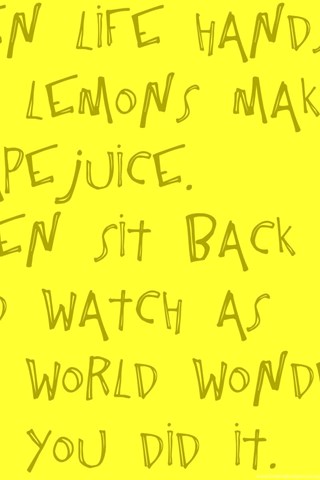 EN LIFE HANDS
LEMONS MAK
APEJUICE.
EN SIT BACK
D WATCH AS
WORLD WOND
YOU DID IT.